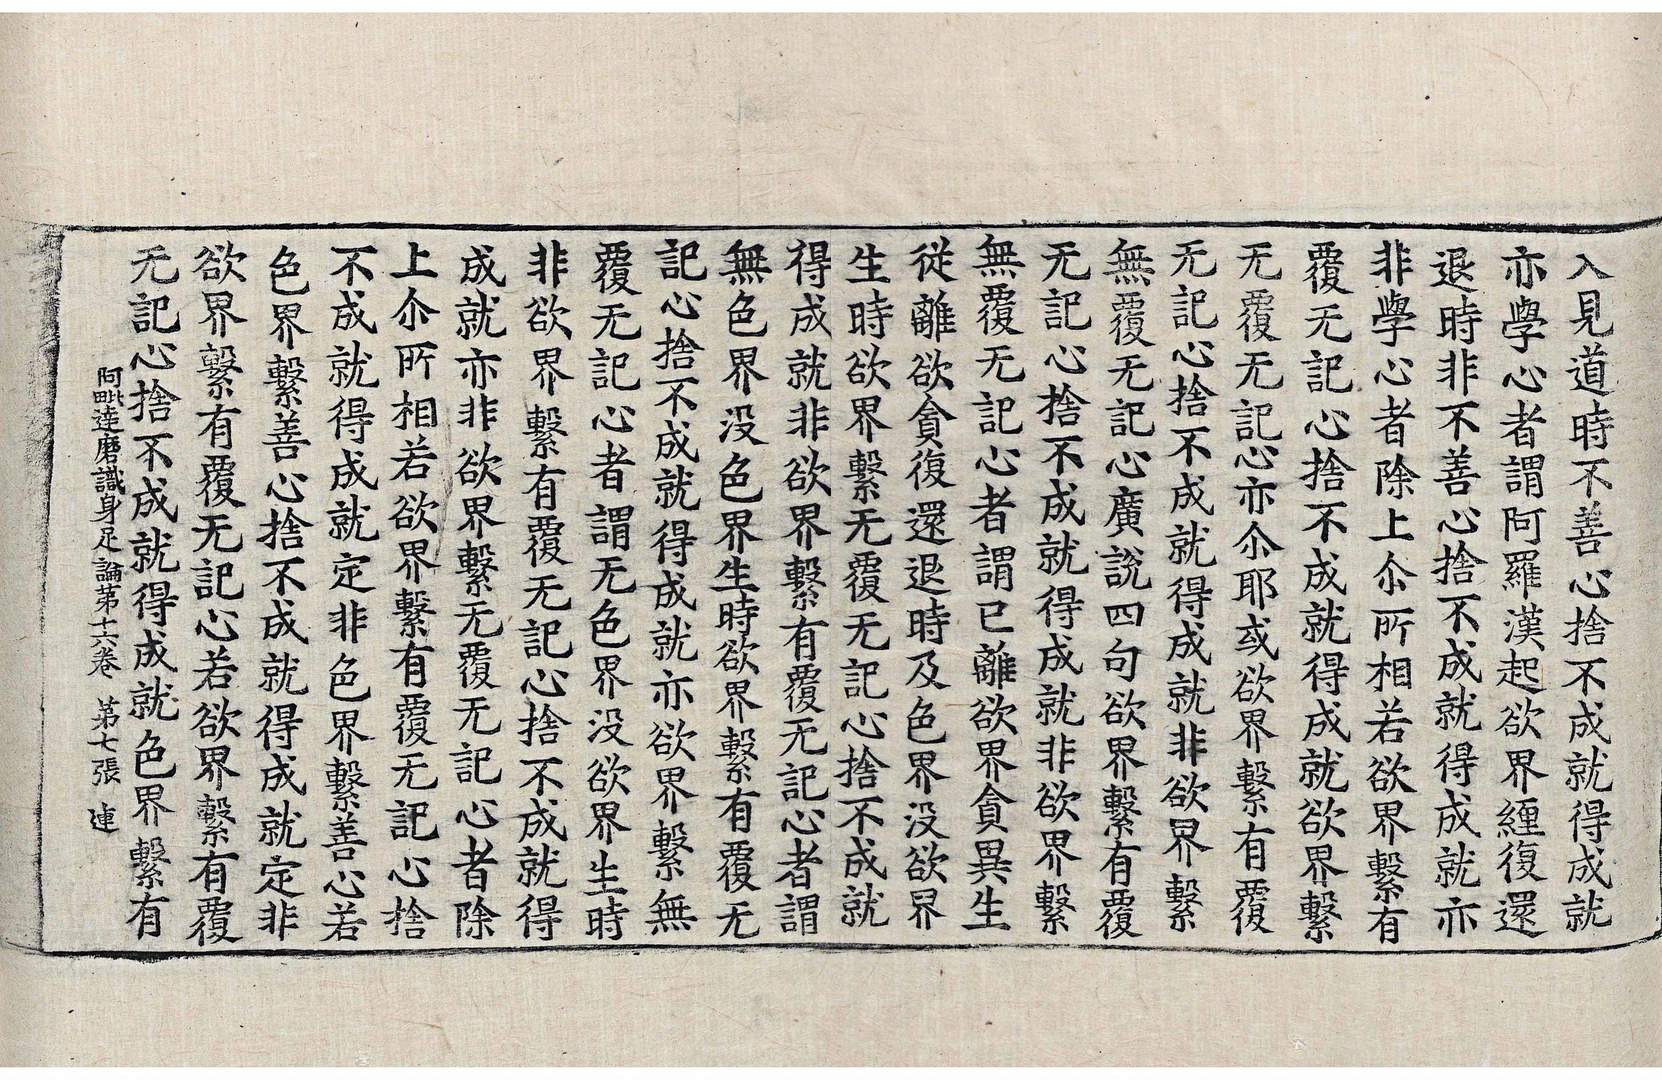 入見道時不善心捨不成就得成就
亦學心者謂阿羅漢起欲界纏復還
退時非不善心捨不成就得成就亦
非學心者除上尒所相若欲界繫有
覆无記心捨不成就得成就欲界繫
无覆无記心亦尒耶或欲界繫有覆
无記心捨不成就得成就非欲界繫
無覆无記心廣說四句欲界繫有覆
无記心捨不成就得成就非欲界繫
無覆无記心者謂已離欲界貪異生
從離欲貪復還退時及色界没欲界
生時欲界繫无覆无記心捨不成就
得成就非欲界繫有覆无記心者謂
無色界没色界生時欲界繫有覆无
記心捨不成就得成就亦欲界繫無
覆无記心者謂无色界没欲界生時
非欲界繫有覆无記心捨不成就得
成就亦非欲界繫无覆无記心者除
上尒所相若欲界繫有覆无記心捨
不成就得成就定非色界繫善心若
色界繫善心捨不成就得成就定非
欲界繫有覆无記心若欲界繫有覆
无記心捨不成就得成就色界繫有
阿毗達磨識身足論第十六卷 第七張 連